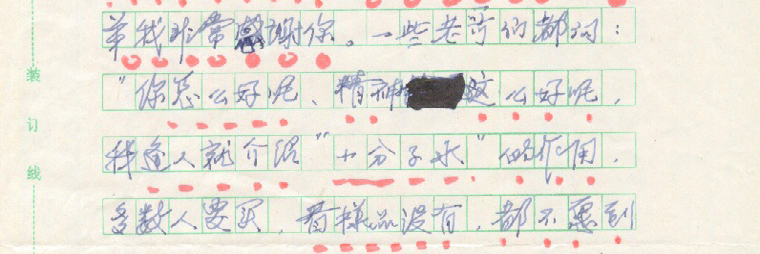 我非常感谢你。一些老们都问：
"你怎么好呢、精神这么好呢，
我逢人就介绍"小分子水"的作用，
多数人要买，看樣品没有，都不愿到
装订线